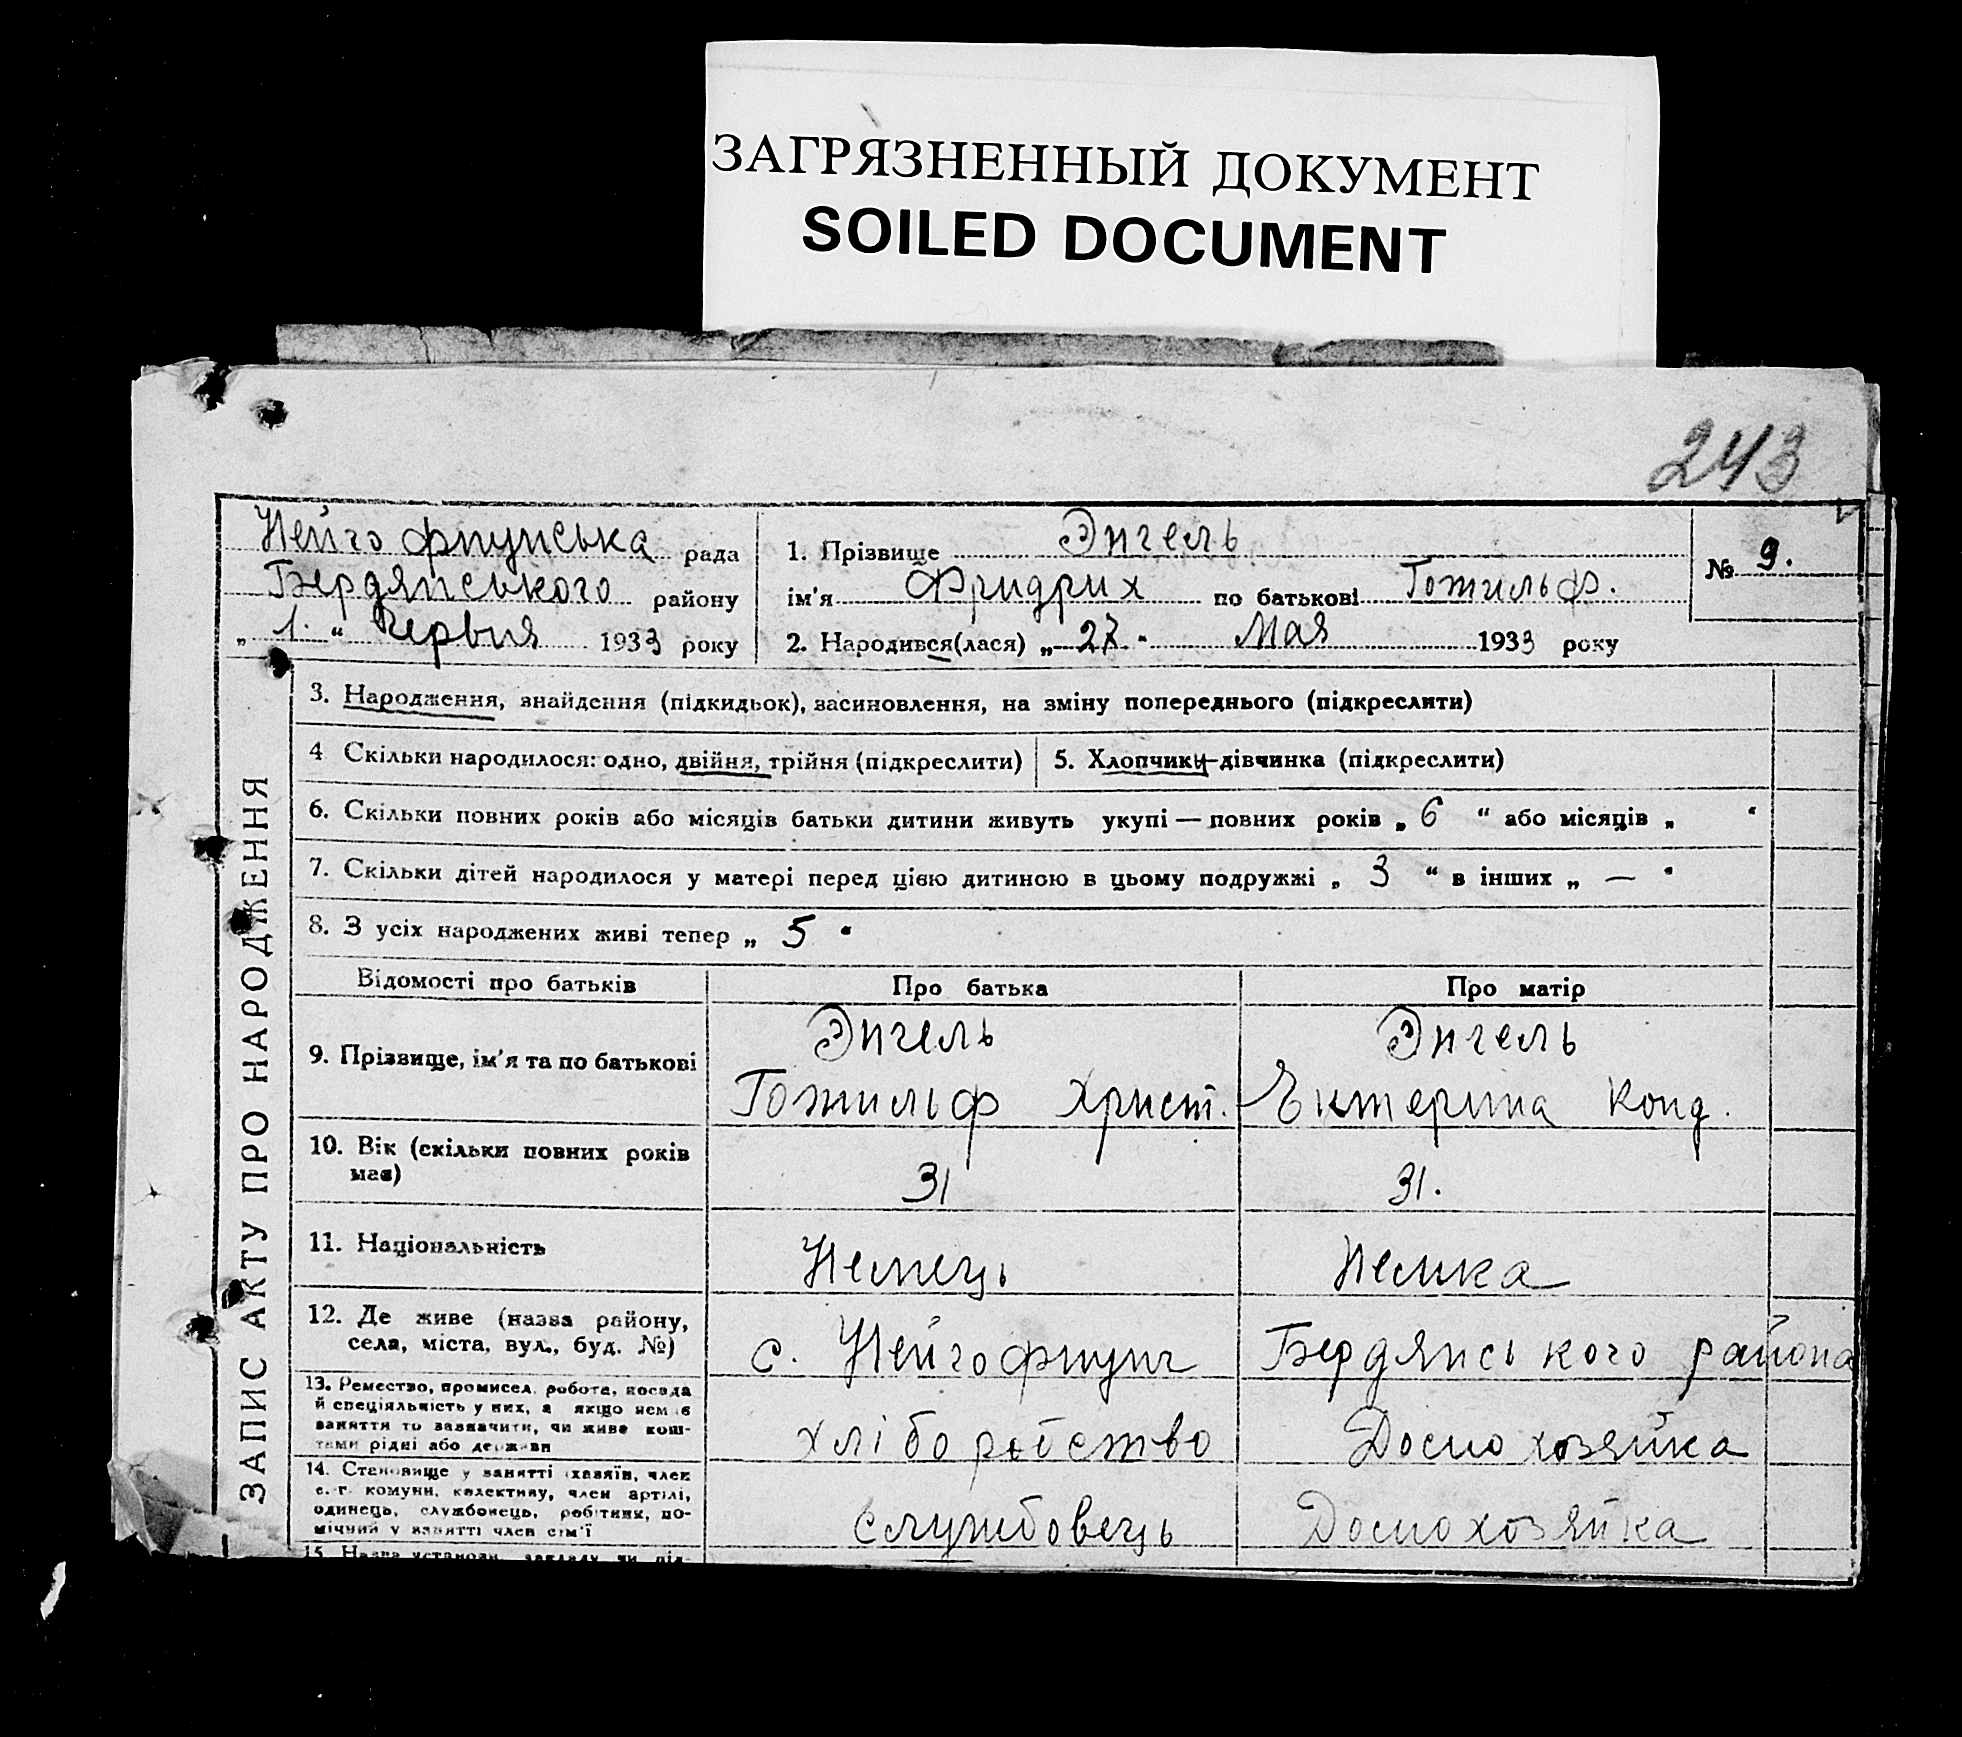 ЗАГРЯЗНЕННЫЙ ДОКУМЕНТ
SOILED DOCUMENT
243
Нейгофнунська рада
Бердянського району
„ 1. “ Червня 1933 року
1. Прізвище Энгель
ім'я Фридрих по батькові Готильф.
2. Народився(лася) „ 27 “ Мая 1933 року
№ 9.
ЗАПИС АКТУ ПРО НАРОДЖЕННЯ
3. Народження, знайдення (підкидьок), засиновлення, на зміну попереднього (підкреслити)
4 Скільки народилося: одно, двійня, трійня (підкреслити)
5. Хлопчик-дівчинка (підкреслити)
6. Скільки повних років або місяців батьки дитини живуть укупі — повних років „ 6 “ або місяців „ “
7. Скільки дітей народилося у матері перед цією дитиною в цьому подружжі „ 3 “ в інших „ — “
8. З усіх народжених живі тепер „ 5 “
Відомості про батьків Про батька Про матір
9. Прізвище, ім'я та по батькові
Энгель
Готильф Христ.
Энгель
Ектерина Конд.
10. Вік (скільки повних років
має)
31
31.
11. Національність
Немець
Немка
12. Де живе (назва району,
села, міста, вул., буд. №)
с. Нейгофнунг Бердянського района
13. Ремество, промисел, робота, посада
й спеціяльність у них, а якщо немає
заняття то зазначити, чи живе кош-
тами рідні або держави
хліборобство
Домохозяйка
14. Становище у занятті (хазяїн, член
с.-г. комуни, колективу, член артілі,
одинець, службовець, робітник, по-
мічний у занятті член сім'ї
службовець
Домохозяйка
15. Назва установи, закладу чи під-